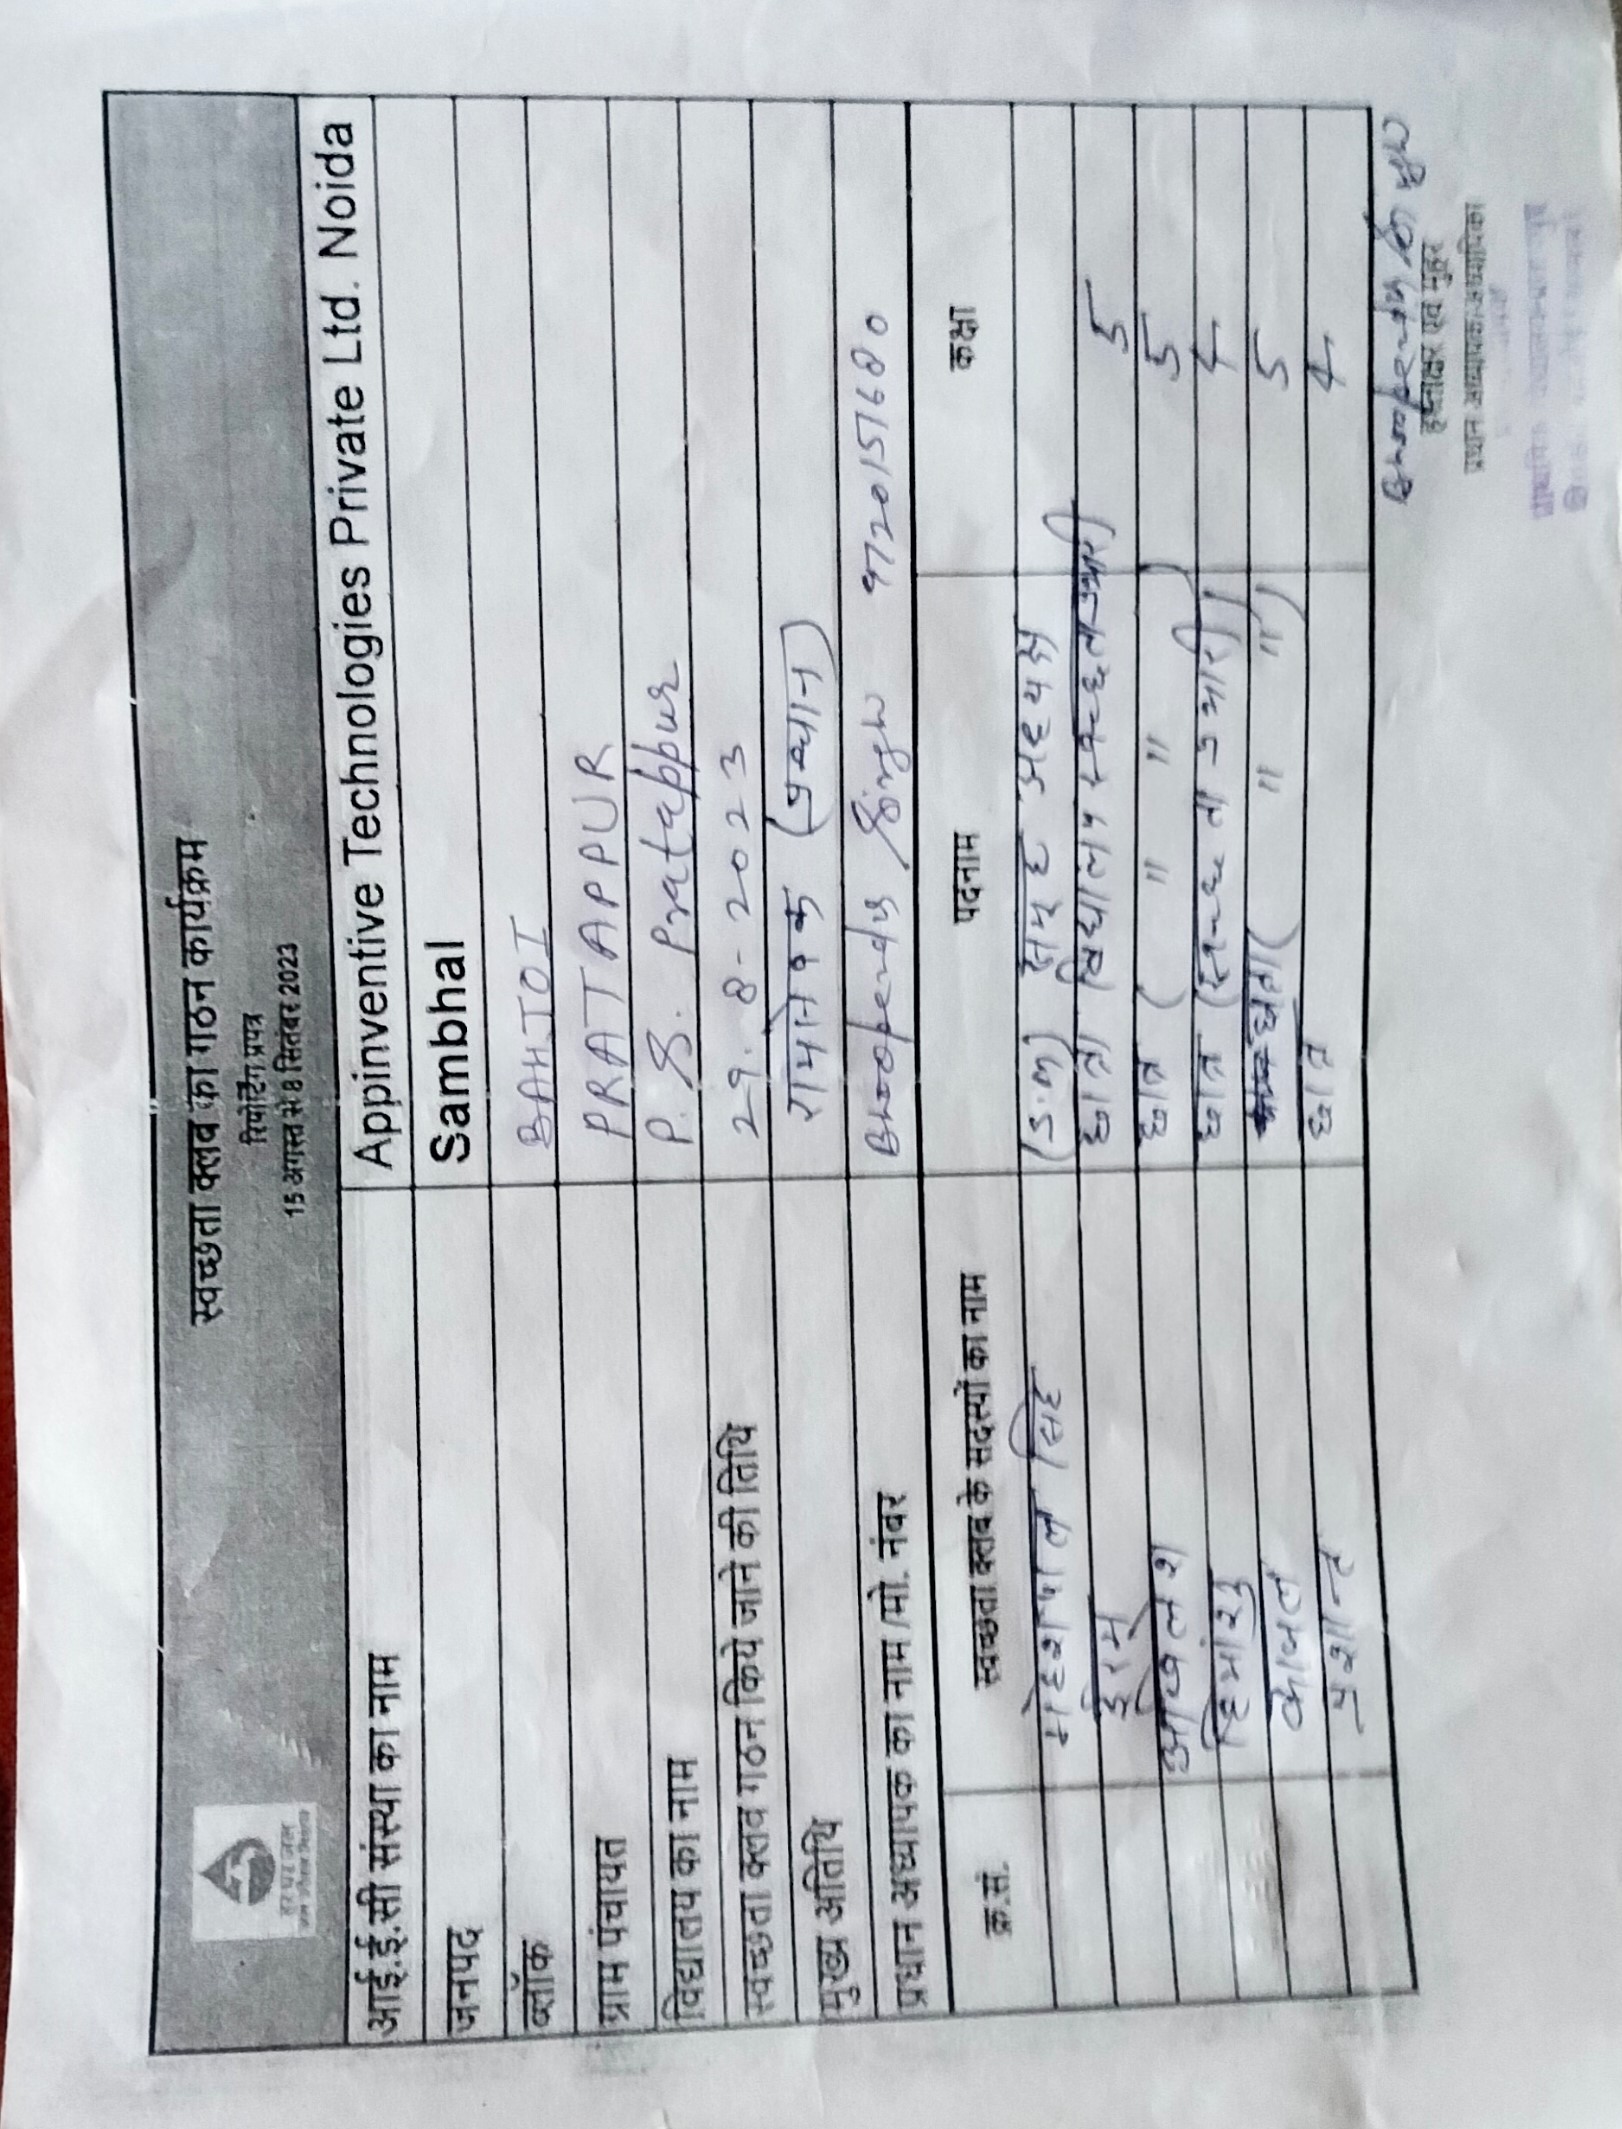 स्वच्छता क्लब का गठन कार्यक्रम
रिपोर्टिंग प्रपत्र
15 अगस्त से 8 सितंबर 2023
हर घर जल
जल जीवन मिशन
आई.ई.सी संस्था का नाम Appinventive Technologies Private Ltd. Noida
जनपद Sambhal
ब्लॉक BAHJOI
ग्राम पंचायत PRATAPPUR
विद्यालय का नाम P. S. Pratappur
स्वच्छता क्लब गठन किये जाने की तिथि 29.8-2023
मुख्य अतिथि रामसेवक (प्रधान)
प्रधान अध्यापक का नाम /मो. नंबर Bhoopendra Singh 9720151680
क्र.सं. स्वच्छता क्लब के सदस्यों का नाम पदनाम कक्षा
महेशपाल सिंह (इ.अ) समूह अध्यक्ष
इरम छात्रा विद्यालय स्वच्छता 5
अखिलेश छात्र ( " " ) 5
हिमांशु छात्र (स्वच्छता प्रभारी) 4
काजल छात्रा ( " " ) 5
प्रशान्त छात्र 4
Bhoopendra Singh
हस्ताक्षर एवं मुहर
प्रधान अध्यापक/अध्यापिका